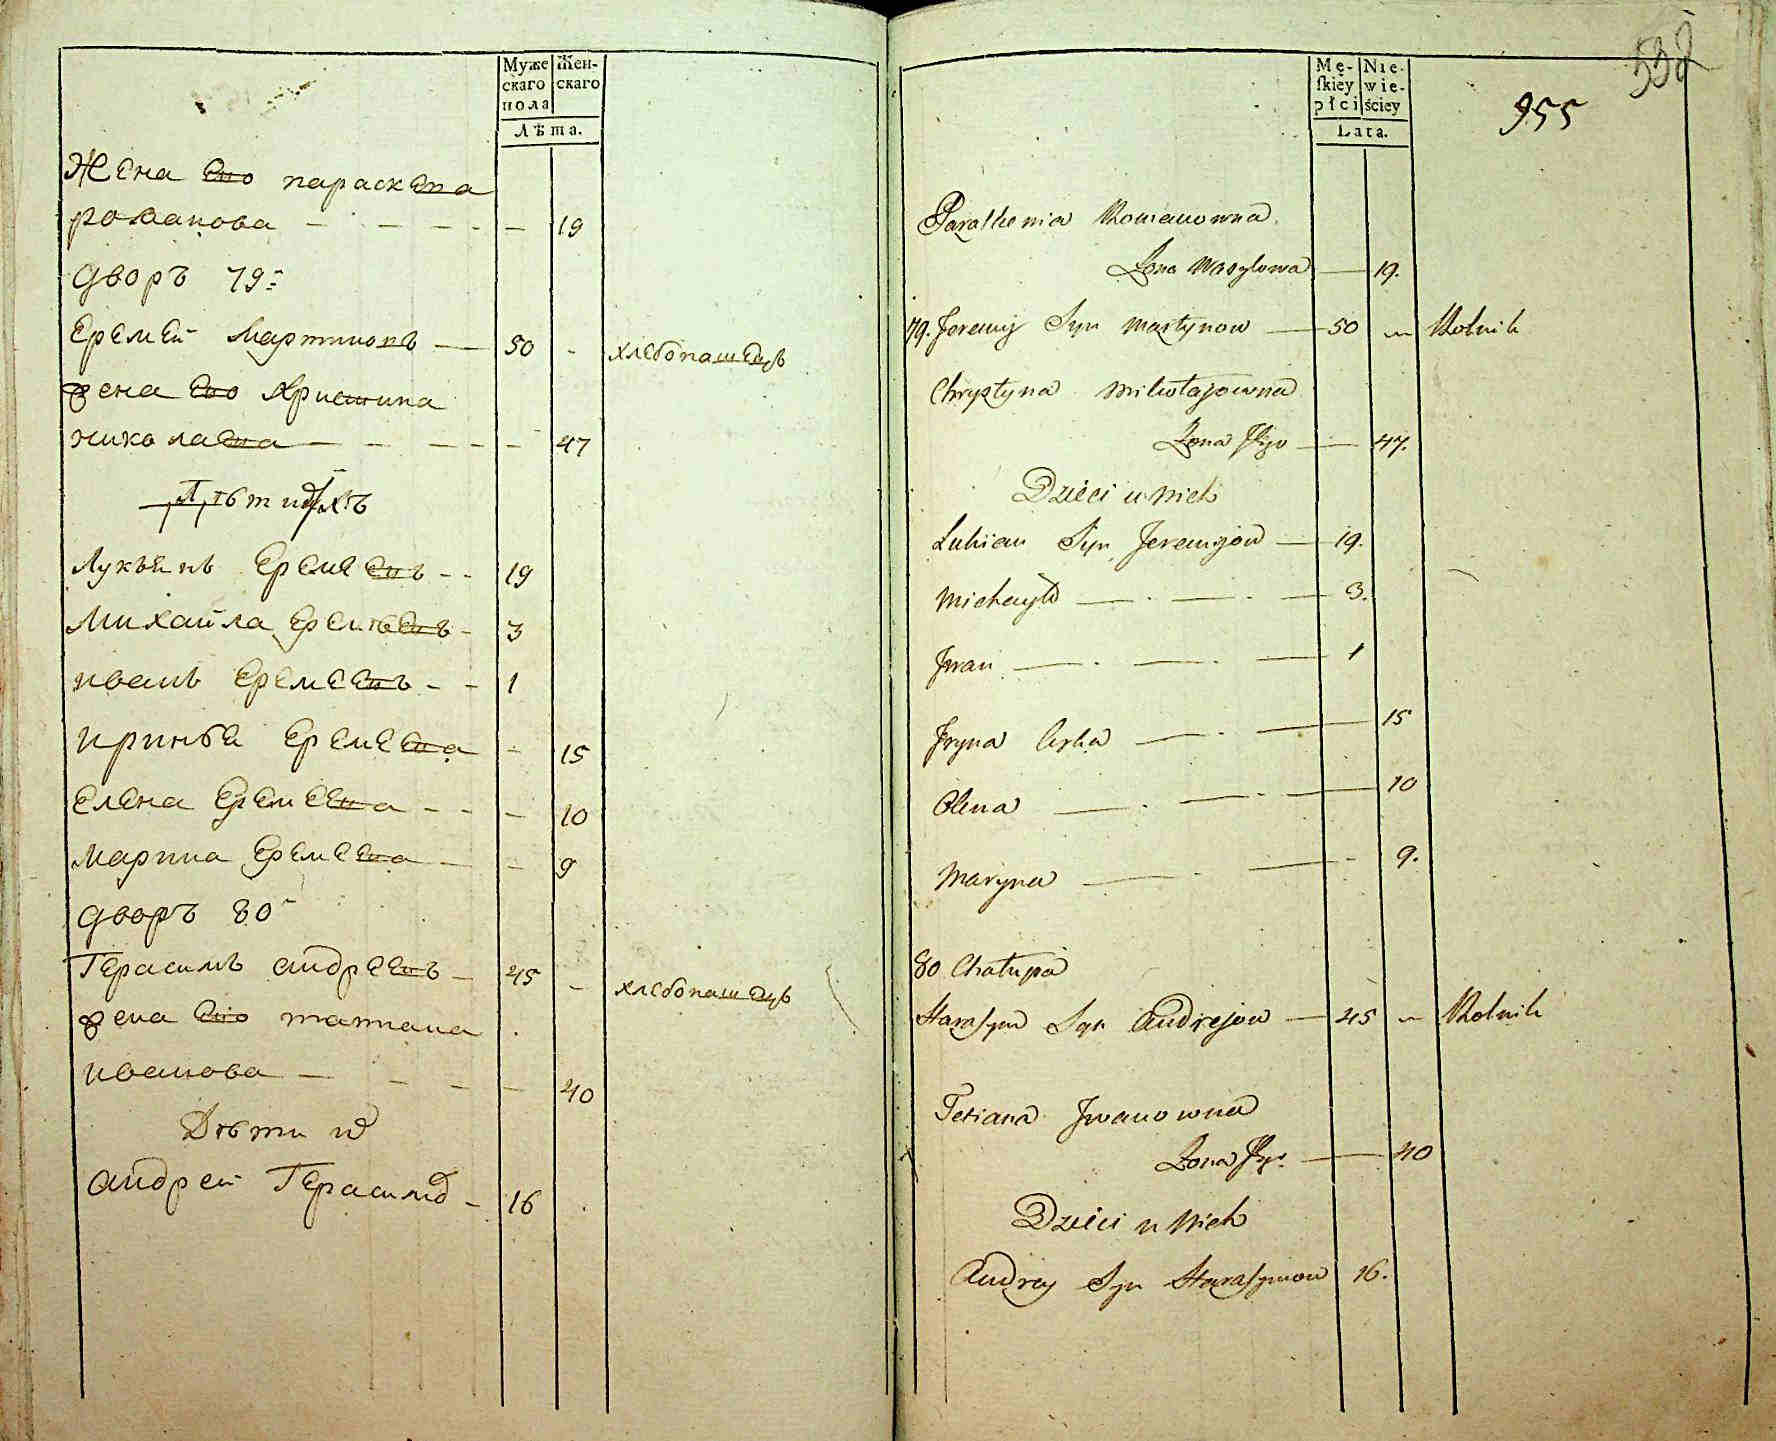 Муже
скаго
пола
Жен-
скаго
Лѣта.
Жена Ево параскева
романова — — — — — 19
дворъ 79:
Еремей Мартиновъ — 50 - хлебопашецъ
жена Ево Христина
николаева — — — — — 47
Дѣти ихъ
Лукъянъ Еремеевъ - - 19
Михайла Еремѣевъ - 3
иванъ Еремеевъ - - 1
иринья Еремеева - 15
Елена Еремеева - - - 10
марина Еремеева — - 9
дворъ 80
Герасимъ андреевъ — 45 - хлебопашецъ
жена Ево татиана
иванова — — — — 40
Дѣти их
андрей Герасимов - 16
Mę-
skiey
płci
Nie-
wie-
ściey
Lata.
955
538
Paraskewia Romanowna
Żona Wasylowa — 19.
79. Jeremij Syn Martynow — 50 „ Rolnik
Chrystyna Mikołajowna
Żona Jego — 47.
Dzieci u Nich
Lukian Syn Jeremjow — 19.
Michayło — . — . — 3.
Jwan — . — . — 1
Jryna Corka — . — 15
Olena — . — . — 10
Maryna — . — - 9.
80 Chałupa
Harasym Syn Andrejow — 45 „ Rolnik
Tetiana Jwanowna
Żona Jego — 40
Dzieci u Nich
Andrey Syn Harasymow 16.